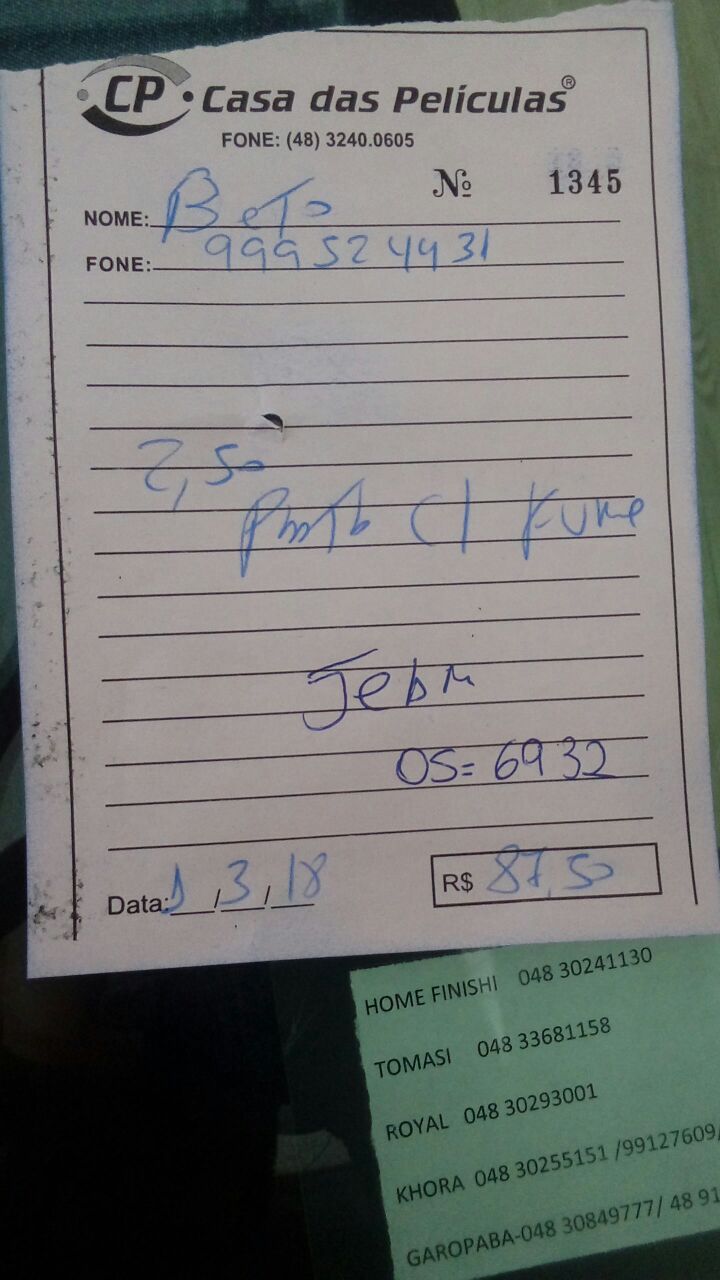 CP Casa das Películas®
FONE: (48) 3240.0605
№ 1345
NOME: Beto
FONE: 999524431
2,50
C/ Kume
OS= 6932
Data: 1/3/18
R$ 87,50
HOME FINISHI 048 30241130
TOMASI 048 33681158
ROYAL 048 30293001
KHORA 048 30255151 /99127609/
GAROPABA-048 30849777/ 48 91